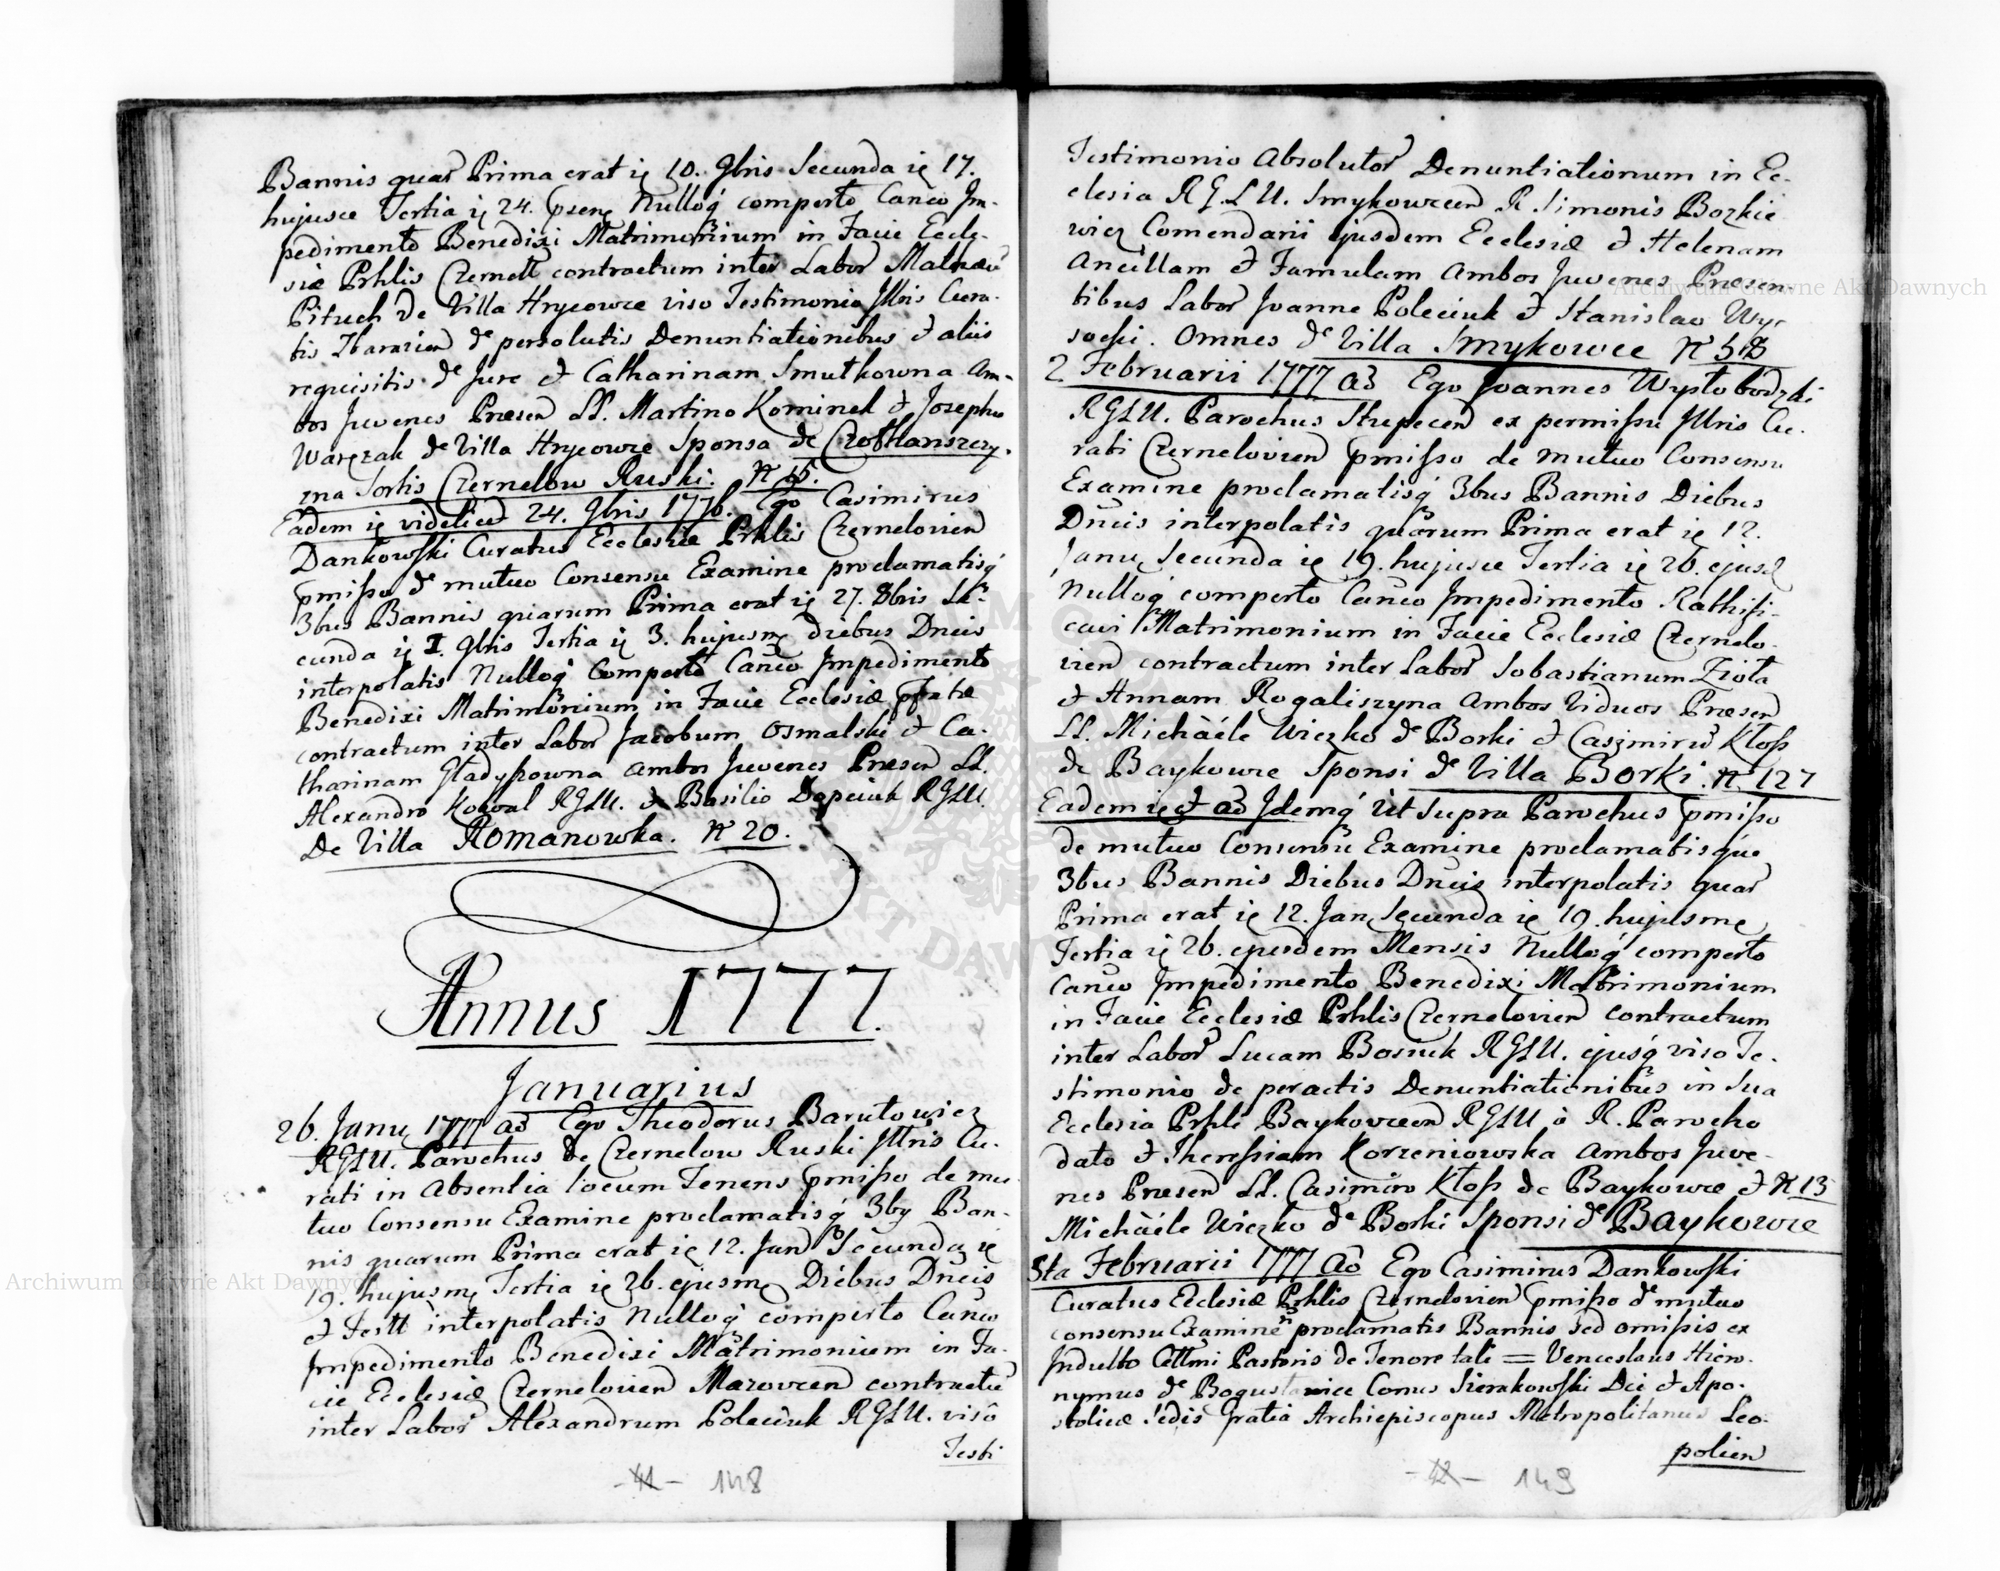 Bannis quar Prima erat ię 10. 9bris Secunda ię 17.
hujusce Tertia ię 24. pseng Nulloq́ comperto Canco Im-
pedimento Benedixi Matrimonium in Facie Eccle-
siæ Prhlis Czernell contractum inter Labor Mathæū
Pituch de Villa Hrycowce viso Testimonio Illris Cura-
tis Zbararien de persolutis Denuntiationibus et aliis
requisitis de Jure et Catharinam Smutkowna Am-
bos Juvenes Præsen LL. Martino Kominek et Josepho
Waręzak de Villa Hrycowce Sponsa de Czołhanszczy-
zna Sortis Czernelow Ruski. N 15.
Eadem ię videlicet 24. 9bris 1776. Ego Casimirus
Dankowski Curatus Ecclesiæ Prhlis Czernelovien
pmisso de mutuo Consensu Examine proclamatisq́
3bus Bannis quarum Prima erat ię 27. 8bris Se-
cunda ię I. 9bris Tertia ię 3. hujusmę diebus Dncis
interpolatis Nulloq́ Comperto Canco Impedimento
Benedixi Matrimonium in Facie Ecclesiæ pfatæ
contractum inter Labor Jacobum Osmalski et Ca-
tharinam Gładyszowna Ambos Juvenes Præsen LL.
Alexandro Kowal RGLU. et Basilio Dapciuk RGLU.
De Villa Romanowka. N 20.
Annus 1777.
Januarius
26. Janu 1777 ao Ego Theodorus Barutowicz
RGLU. Parochus de Czernelow Ruski Illris Cu-
rati in Absentia locum Tenens pmisso de mu-
tuo Consensu Examine proclamatisq́ 3by Ban-
nis quarum Prima erat ię 12. Jan Secunda ię
19. hujusmę Tertia ię 26. ejusmę Diebus Dncis
et Festt interpolatis Nulloq́ comperto Canco
Impedimento Benedixi Matrimonium in Fa-
cie Ecclesiæ Czernelovien Mazovcen contractū
inter Labor Alexandrum Poleciuk RGLU. viso
Testi
-41- 148
Testimonio Absolutor Denuntiationum in Ec-
clesia RGLU. Smykowcen R. Simonis Bozkie
wicz Comendarii ejusdem Ecclesiæ et Helenam
Ancillam et Famulam Ambos Juvenes Præsen-
tibus Labor Joanne Poleciuk et Stanislao Wy-
socki. Omnes de Villa Smykowce N 58
2 Februarii 1777 ao Ego Joannes Wysłobodzki
RGLU. Parochus Stupecen ex permissu Illris Cu-
rati Czernelovien pmisso de mutuo Consensu
Examine proclamatisq́ 3bus Bannis Diebus
Dncis interpolatis quorum Prima erat ię 12.
Janu Secunda ię 19. hujusce Tertia ię 26. ejusd
Nulloq́ comperto Canco Impedimento Rathifi-
cavi Matrimonium in Facie Ecclesiæ Czernelo-
vien contractum inter Labor Sobastianum Zioła
et Annam Rogaliszyna Ambos Viduos Præsen
LL. Michäéle Wiczko de Borki et Casimirō Kłoss
de Baykowce Sponsi de Villa Borki. N. 127
Eadem ię et ao Idemq́ Ut Supra Parochus pmisso
de mutuo Consensu Examine proclamatisque
3bus Bannis Diebus Dncis interpolatis quar
Prima erat ię 12. Jan Secunda ię 19. hujusmę
Tertia ię 26. ejusdem Mensis Nulloq́ comperto
Canco Impedimento Benedixi Matrimonium
in Facie Ecclesiæ Prhlis Czernelovien contractum
inter Labor Lucam Bosnik RGLU. ejusq́ viso Te-
stimonio de peractis Denuntiationibus in Sua
Ecclesia Prhli Baykovcen RGLU à R. Parocho
dato et Theressiam Korzeniowska Ambos Juve-
nes Præsen LL. Casimiro Kłoss de Baykowce et N 13
Michäéle Wiczko de Borki Sponsi de Baykowce
3ta Februarii 1777 ao Ego Casimirus Dankowski
Curatus Ecclesiæ Prhlis Czernelovien pmisso de mutuo
consensu Examine proclamatis Bannis sed omissis ex
Indulto Cellmi Pastoris de Tenore tali = Venceslaus Hiero-
nymus de Bogusławice Comes Sierakowski Dei et Apo-
stolicæ Sedis Gratia Archiepiscopus Metropolitanus Leo-
polien
-42- 149
Archiwum Główne Akt Dawnych
Archiwum Główne Akt Dawnych